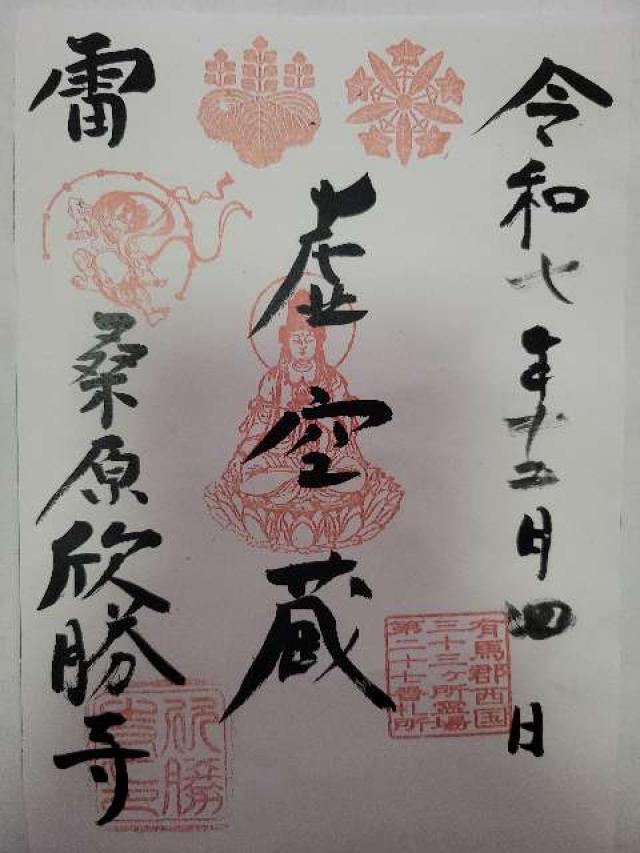 令和七年十二月四日
虚空蔵
雷
桑原欣勝寺
有馬郡西国
三十三ヶ所霊場
第二十七番札所